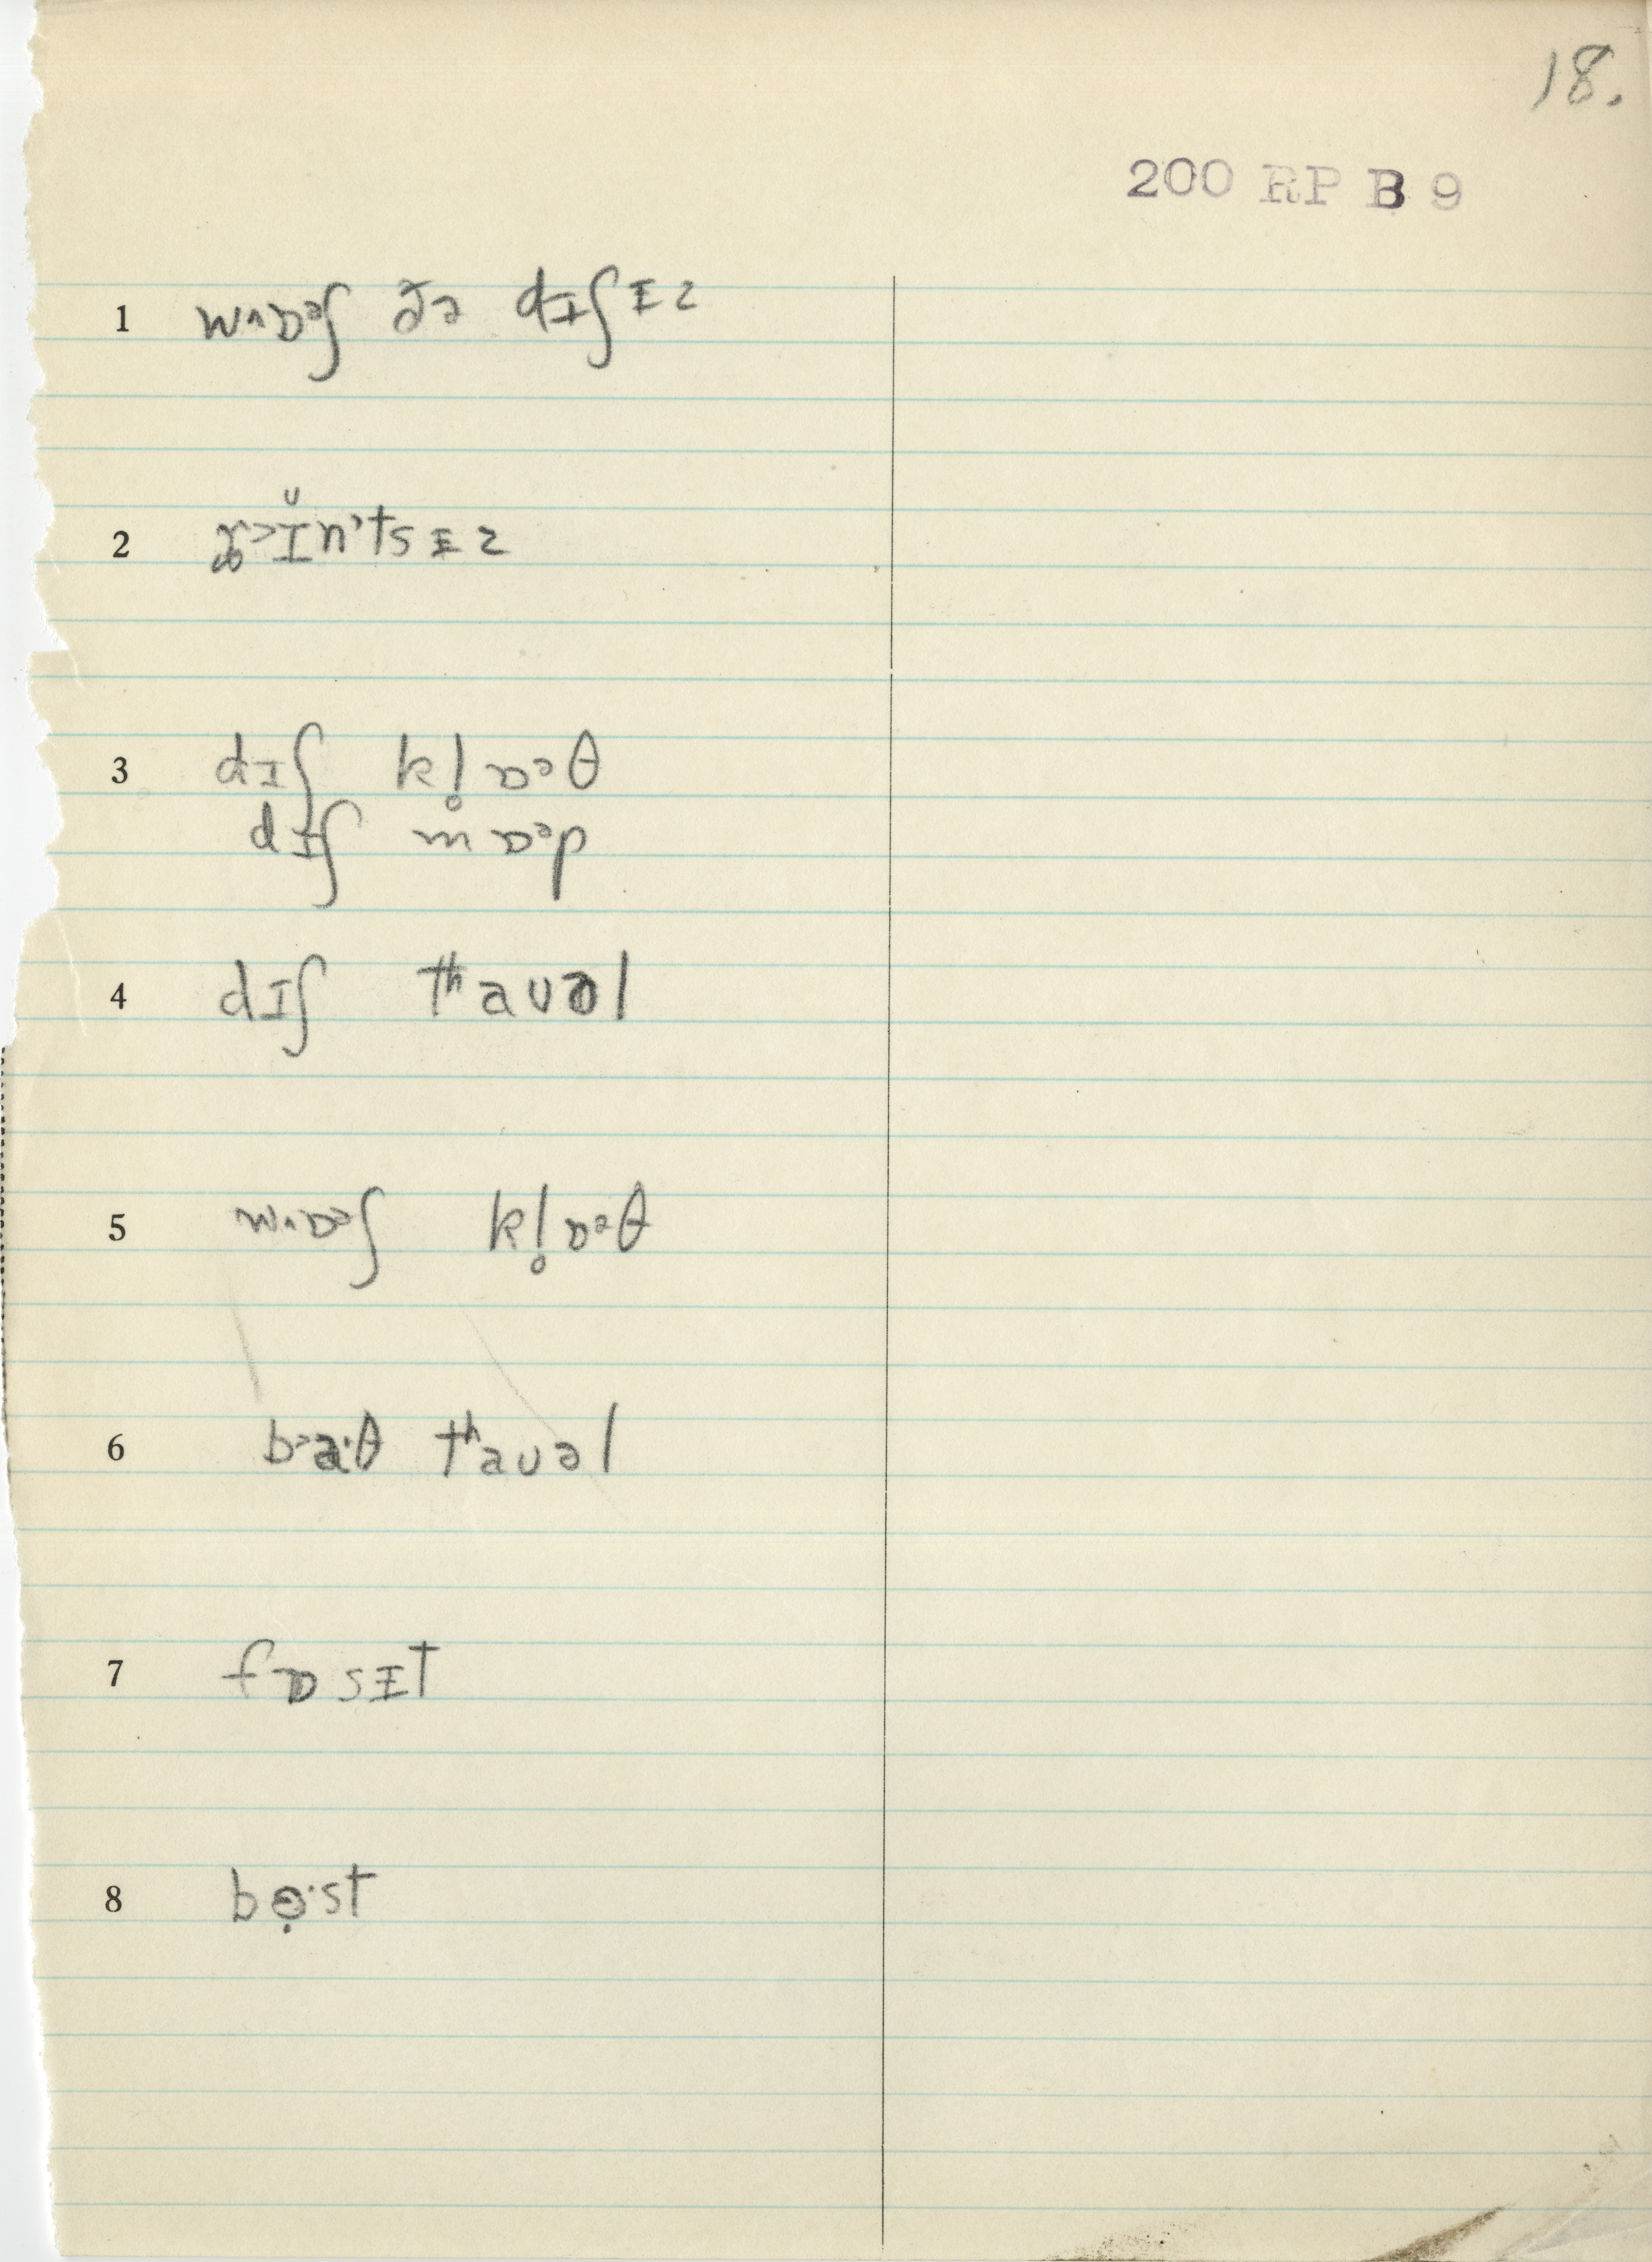 18.
200 RP B 9
1 wʌɒᵊʃ ðə dɪʃɪz
2 ɪ̆n'tsɪz
3 dɪʃ kl̥ɒᵊθ
dɪʃ mɒᵊp
4 dɪʃ tʰaʊəl
5 wʌɒᵊʃ kl̥ɒᵊθ
6 tʰaʊəl
7 fɒsɪt
8